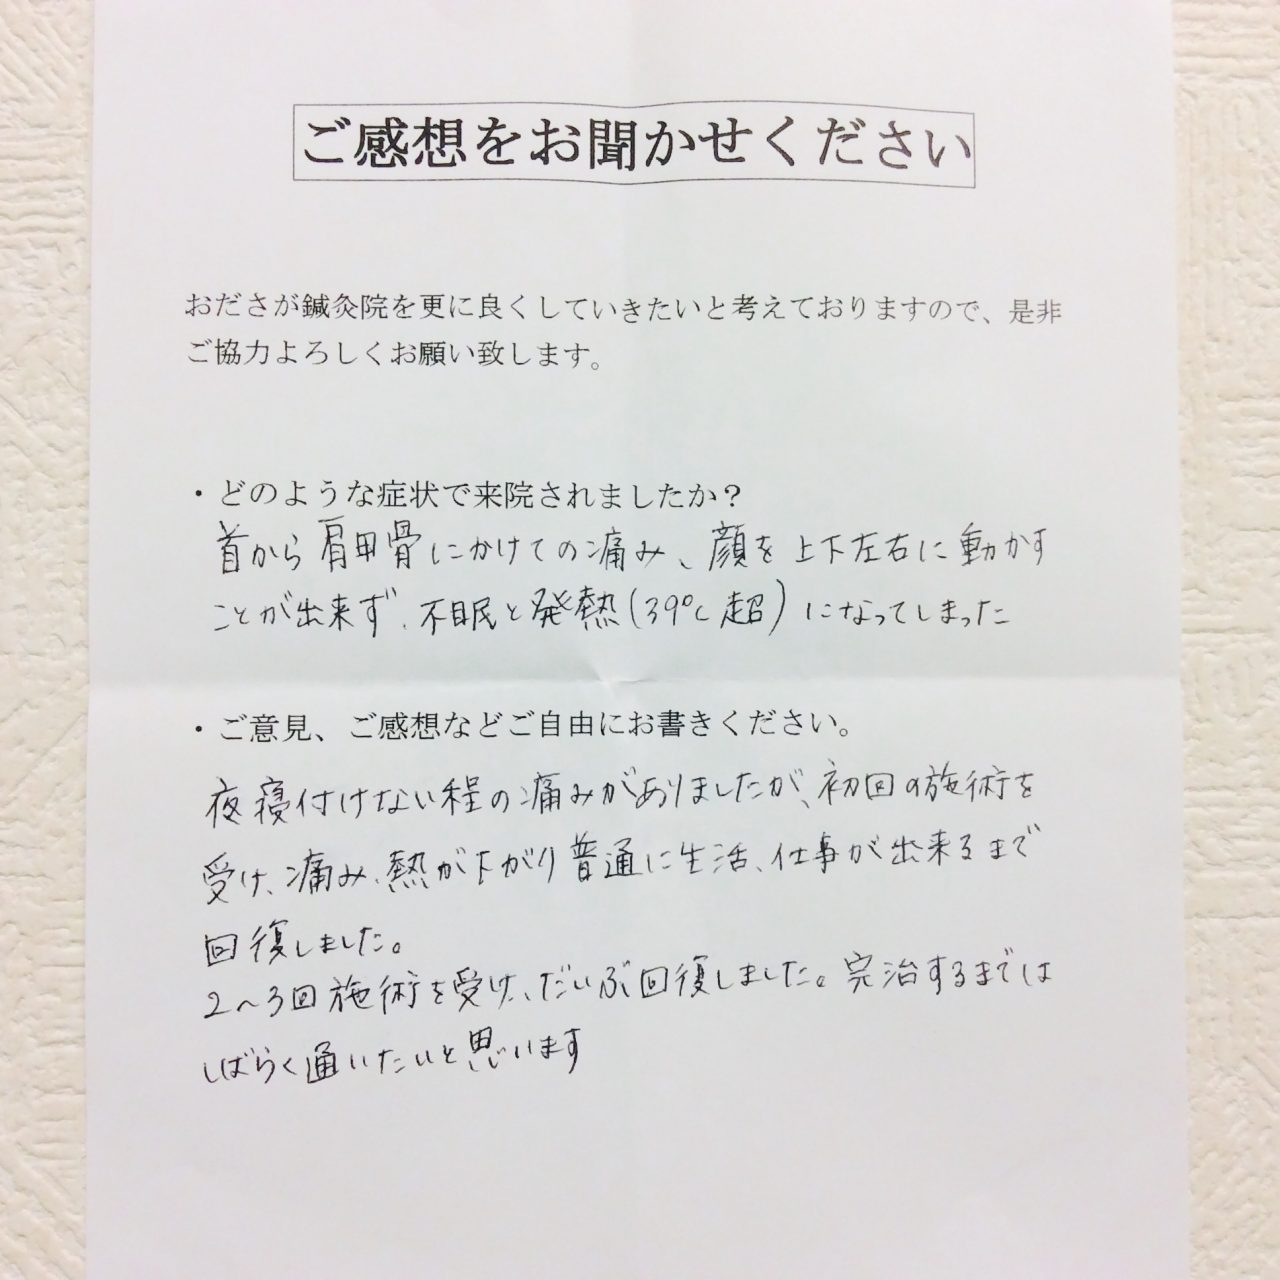 ご感想をお聞かせください
おださが鍼灸院を更に良くしていきたいと考えておりますので、是非
ご協力よろしくお願い致します。
・どのような症状で来院されましたか？
首から肩甲骨にかけての痛み、顔を上下左右に動かす
ことが出来ず、不眠と発熱(39℃超)になってしまった
・ご意見、ご感想などご自由にお書きください。
夜寝付けない程の痛みがありましたが、初回の施術を
受け、痛み、熱が下がり普通に生活、仕事が出来るまで
回復しました。
2～3回施術を受け、だいぶ回復しました。完治するまでは
しばらく通いたいと思います